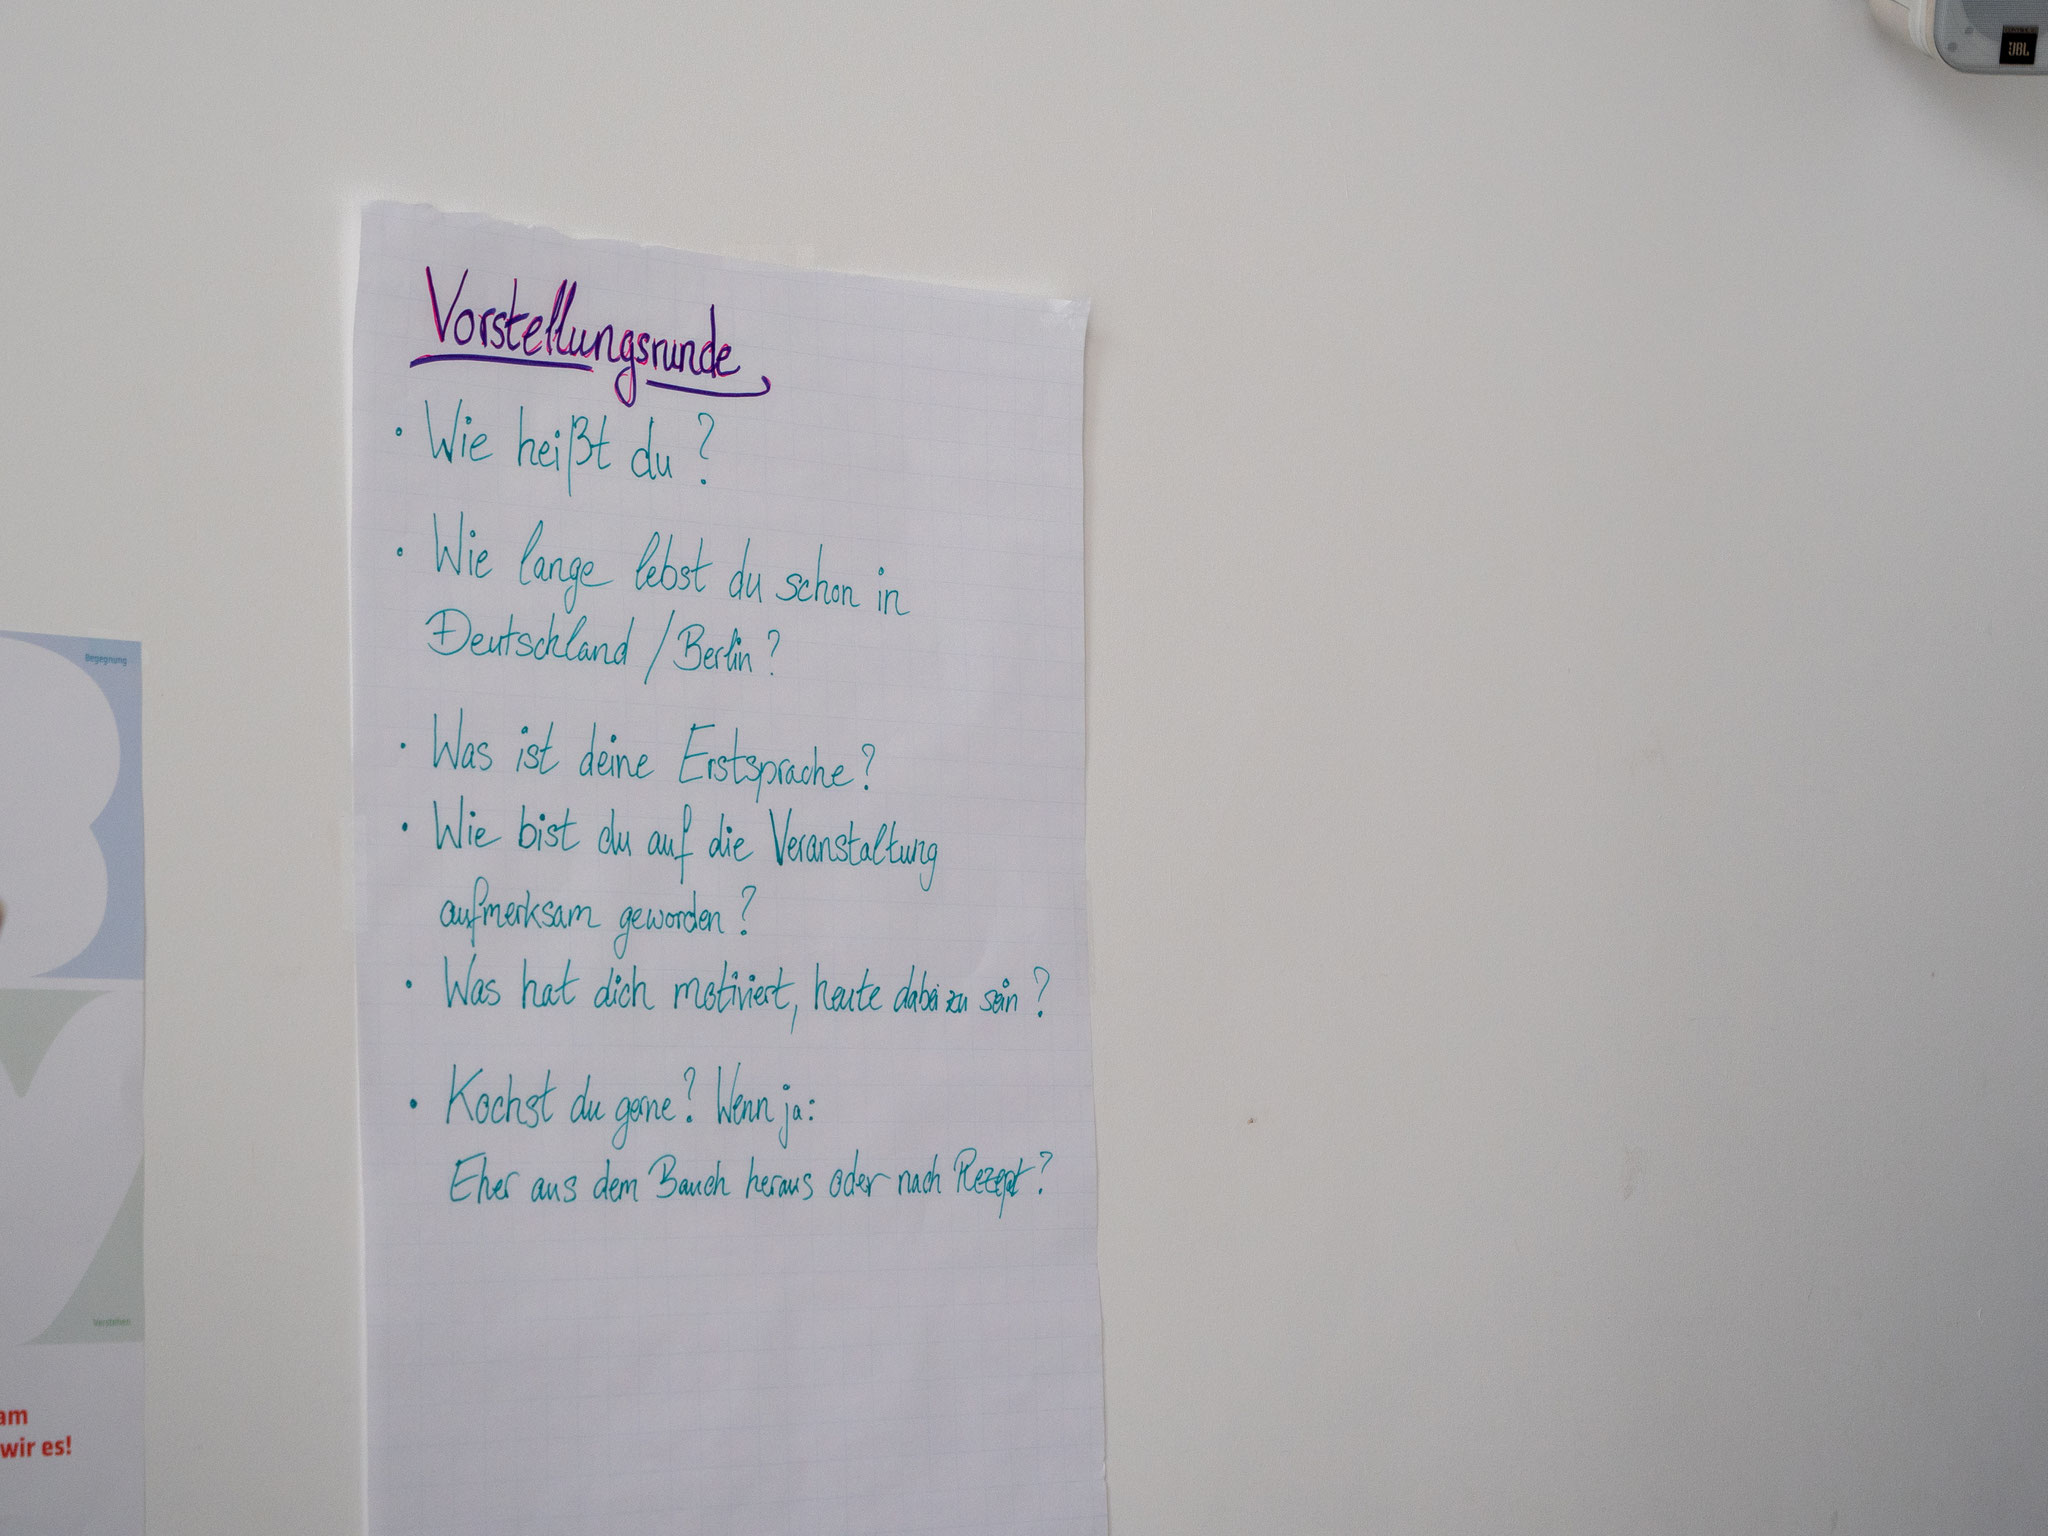 Vorstellungsrunde
• Wie heißt du?
• Wie lange lebst du schon in
Deutschland / Berlin?
• Was ist deine Erstsprache?
• Wie bist du auf die Veranstaltung
aufmerksam geworden?
• Was hat dich motiviert, heute dabei zu sein?
• Kochst du gerne? Wenn ja:
Eher aus dem Bauch heraus oder nach Rezept?
Begegnung
Verstehen
am
wir es!
JBL